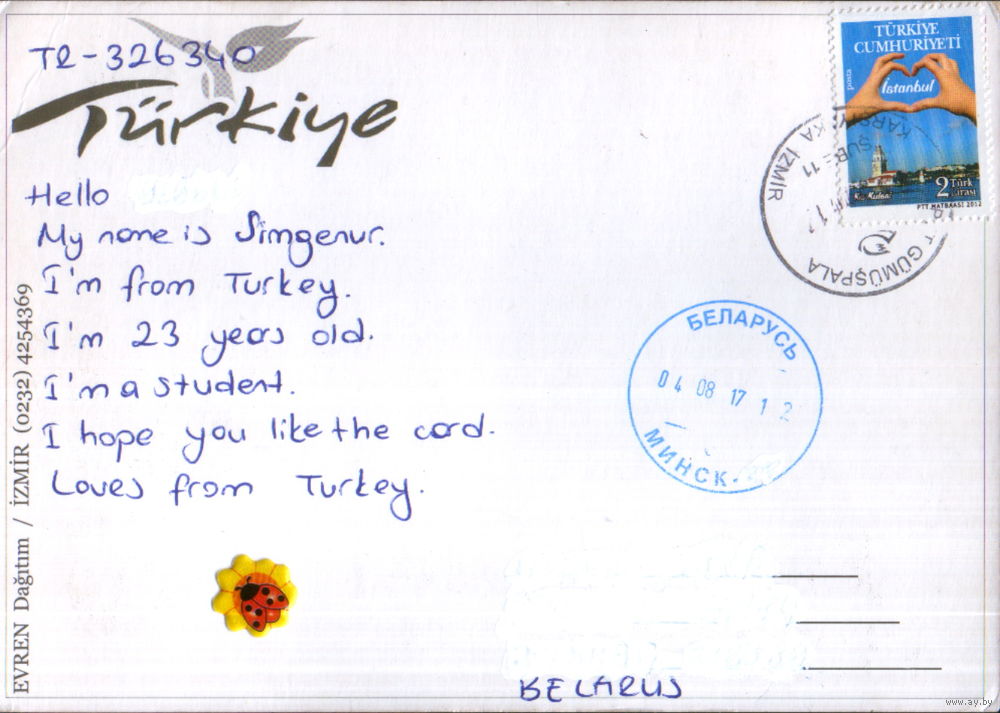 TR-326340
Türkiye
Hello
My name is Simgenur.
I'm from Turkey.
I'm 23 years old.
I'm a student.
I hope you like the card.
Loves from Turkey.
BELARUS
EVREN Dağıtım / İZMİR (0232) 4254369
TÜRKİYE
CUMHURİYETİ
posta
İstanbul
2 Türk
Lirası
PTT MATBAASI 2012
İZMİR
GÜMÜŞPALA
БЕЛАРУСЬ
04 08 17 12
МИНСК
www.ay.by